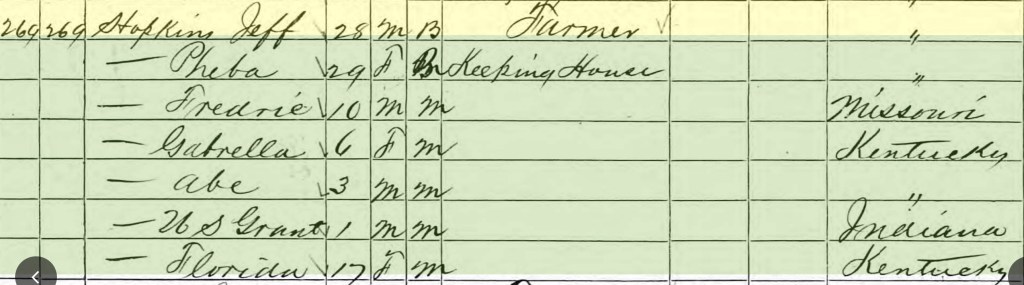 269 269 Hopkins Jeff 28 M B Farmer "
— Pheba 29 F M Keeping House "
— Fredric 10 M M Missouri
— Gabrella 6 F M Kentucky
— Abe 3 M M "
— U S Grant 1 M M Indiana
— Florida 17 F M Kentucky